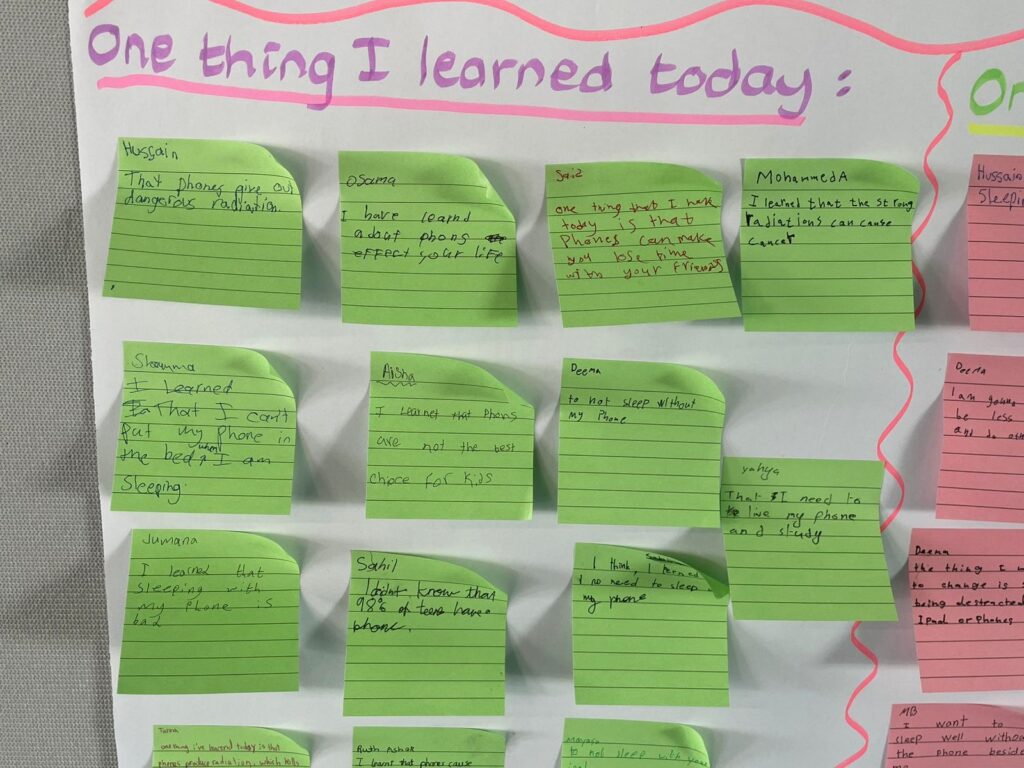 One thing I learned today :
On
Hussain
That phones give out
dangerous radiation.
Osama
I have learnd
about phons
effect your life
Said
one thing that I
today is that
Phones can make
you lose time
with your Friends
Mohammed A
I learnel that the strong
radiations can cause
cancer
Hussain
Sleepin
Shamma
I Learned
That I can't
put my phone in
the bed when I am
Sleeping.
Aisha
I learnet that Phons
are not the best
choice for kids
Deema
to not sleep without
my Phone
yahya
That I need to
live my phone
and study
Deema
I am going
be less
and do oth
Jumana
I learned that
sleeping with
my phone is
bad
Sahil
I didnt know that
98% of teens have a
phone.
I think, I learned
no need to sleep
my phone
Deema
the thing I w
to change is
being destracted
IPad or Phones
MB
I want to
sleep well withou
the phone beside
one thing i've learned today is that
phones produce radiation, which
Ruth Ashok
I learnt that phones cause
to not sleep with your